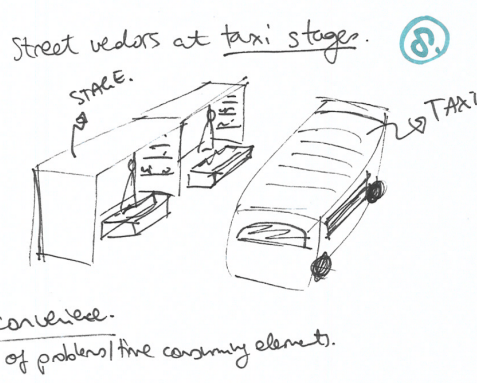 Street vedors at taxi stages. 8.
STAGE.
TAXI
convenience.
of problems/time consuming elements.